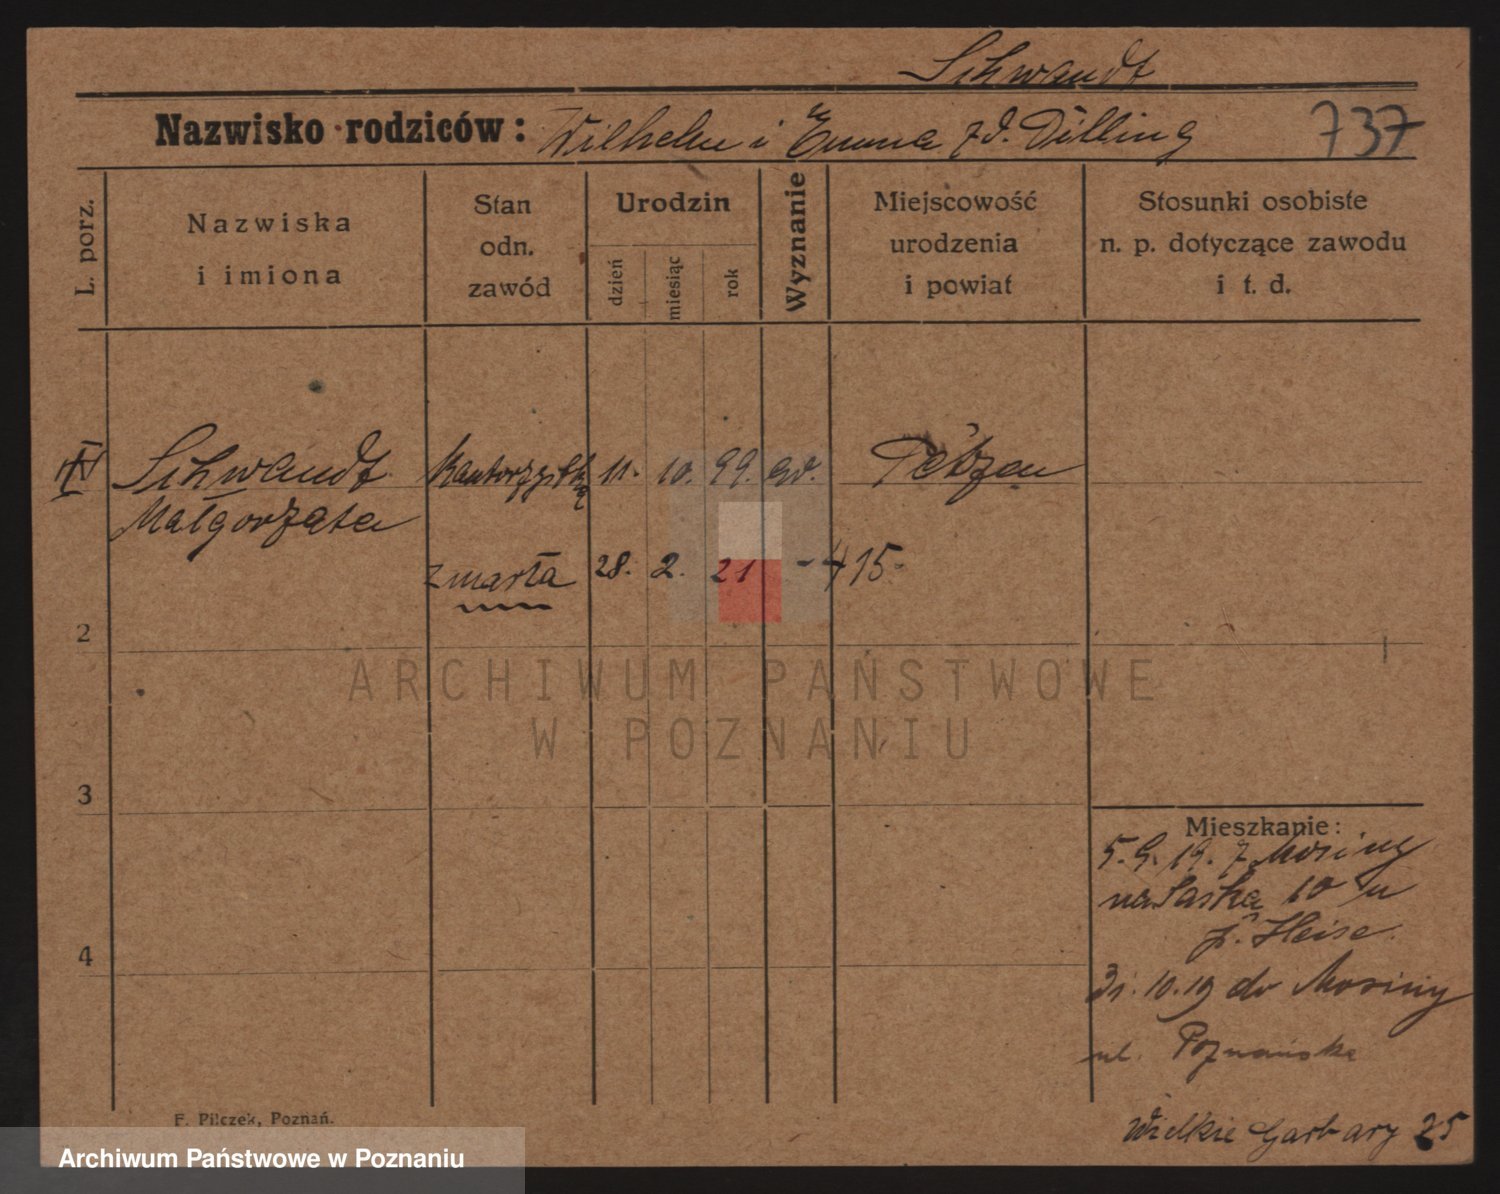 Schwandt
Nazwisko rodziców: Wilhelm i Emma zd. Dilling 737
L. porz.
Nazwiska
i imiona
Stan
odn.
zawód
Urodzin
dzień
miesiąc
rok
Wyznanie
Miejscowość
urodzenia
i powiat
Stosunki osobiste
n. p. dotyczące zawodu
i t. d.
Schwandt kantorzystka 11. 10. 99. ew.
Małgorzata
zmarła 28. 2. 21 - 415-
2
3
4
Mieszkanie:
5.9.19. z Mosiny
na Saska 10 u
p. Heise
31.10.19 do Mosiny
ul. Poznańska
Wielkie Garbary 25
F. Pilczek, Poznań.
ARCHIWUM PAŃSTWOWE
W POZNANIU
Archiwum Państwowe w Poznaniu